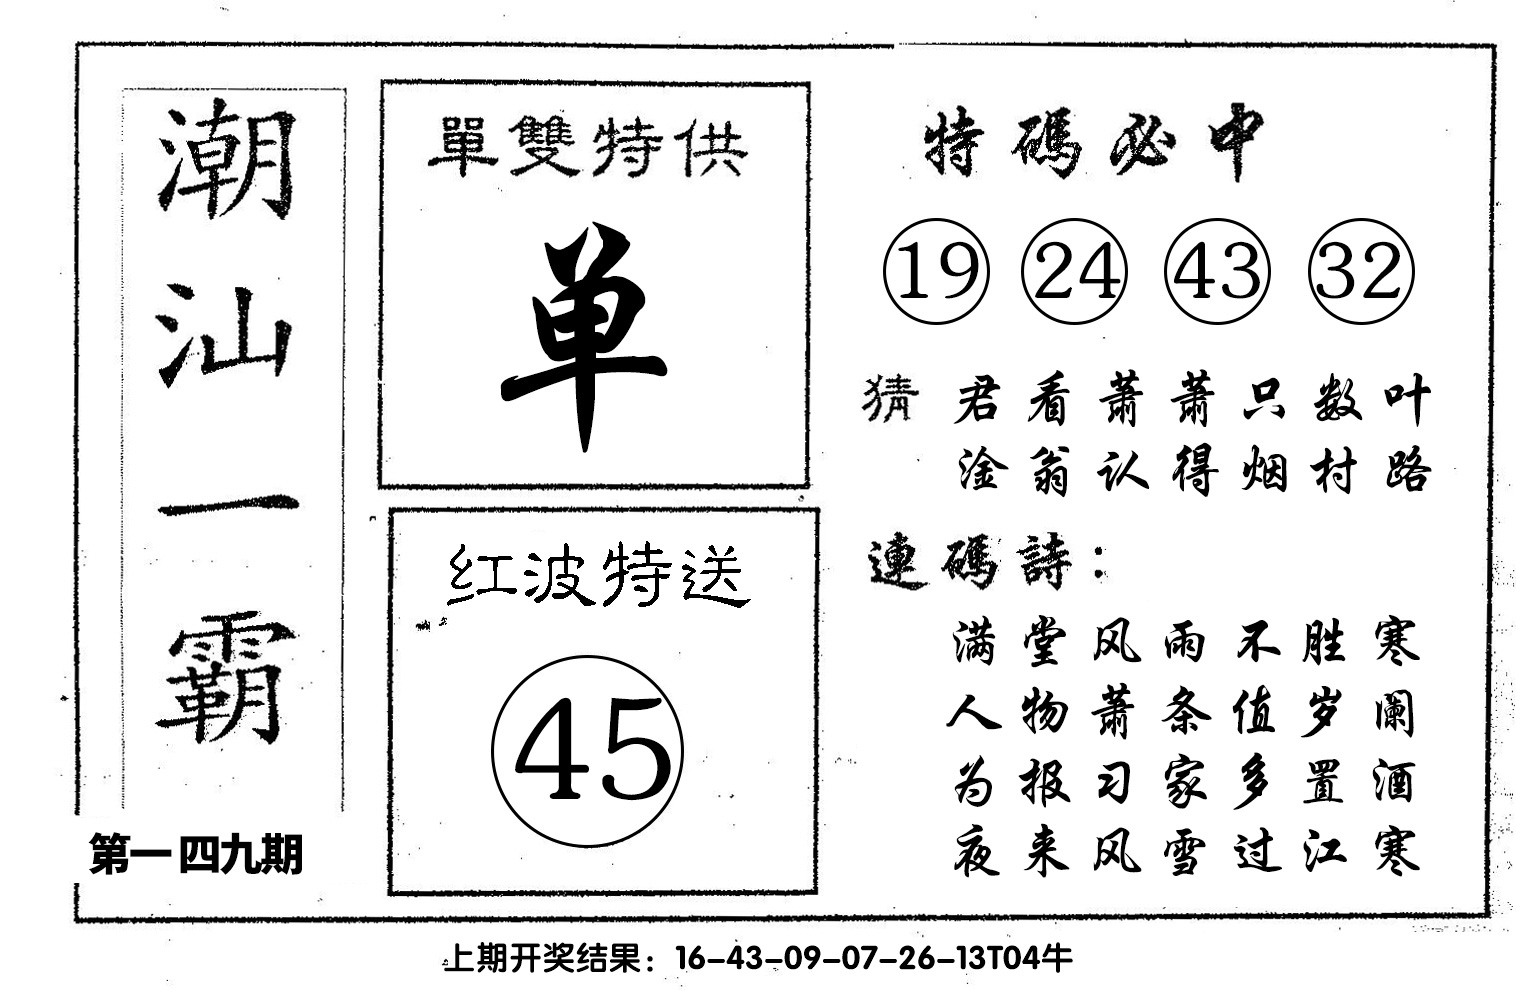 潮汕一霸
第一四九期
單雙特供
单
红波特送
45
特碼必中
19 24 43 32
猜 君看萧萧只数叶
淦翁认得烟村路
連碼詩：
满堂风雨不胜寒
人物萧条值岁阑
为报习家多置酒
夜来风雪过江寒
上期开奖结果：16-43-09-07-26-13T04牛